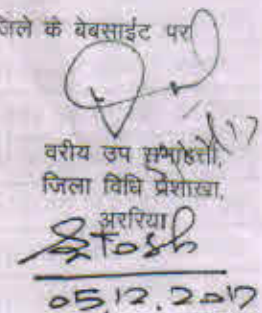 जिले के बेबसाईट पर
वरीय उप समाहर्त्ता,
जिला विधि प्रशाखा,
अररिया
05.12.2017